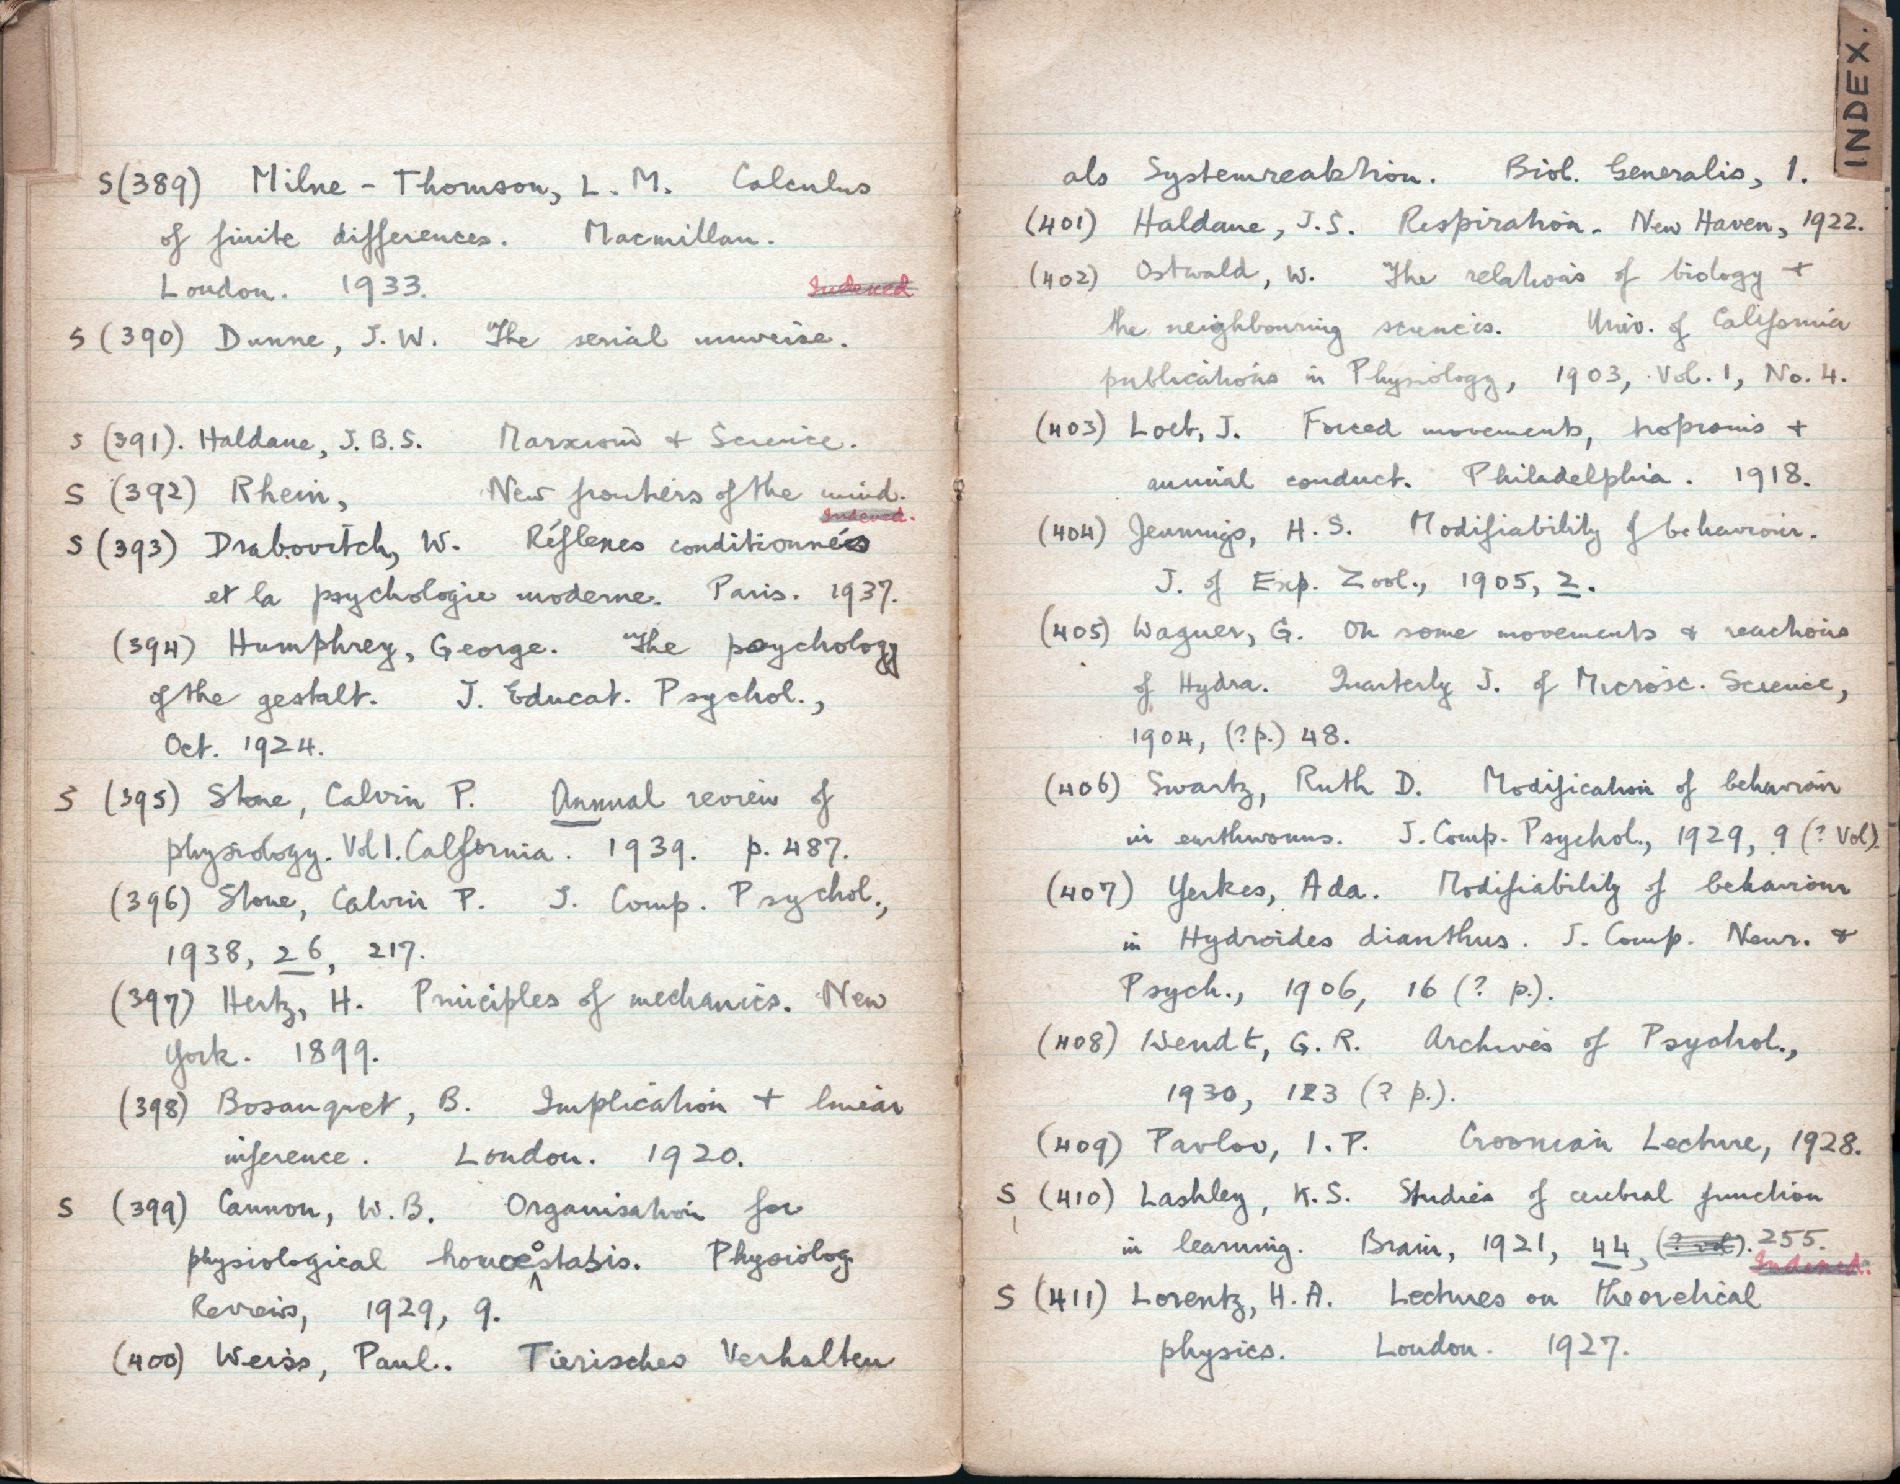 S (389) Milne - Thomson, L. M. Calculus
of finite differences. Macmillan.
London. 1933. Indexed
S (390) Dunne, J. W. The serial universe.
S (391). Haldane, J.B.S. Marxism + Science.
S (392) Rhein, New frontiers of the mind.
Indexed.
S (393) Drabovitch, W. Réflexes conditionnés
et la psychologie moderne. Paris. 1937.
(394) Humphrey, George. The psychology
of the gestalt. J. Educat. Psychol.,
Oct. 1924.
S (395) Stone, Calvin P. Annual review of
physiology. Vol 1. California. 1939. p. 487.
(396) Stone, Calvin P. J. Comp. Psychol.,
1938, 26, 217.
(397) Hertz, H. Principles of mechanics. New
York. 1899.
(398) Bosanquet, B. Implication + linear
inference. London. 1920.
S (399) Cannon, W. B. Organisation for
physiological homeostasis. Physiolog.
Reviews, 1929, 9.
(400) Weiss, Paul. Tierisches Verhalten
INDEX.
als Systemreaktion. Biol. Generalis, 1.
(401) Haldane, J.S. Respiration. New Haven, 1922.
(402) Ostwald, W. The relations of biology +
the neighbouring sciences. Univ. of California
publications in Physiology, 1903, Vol. 1, No. 4.
(403) Loeb, J. Forced movements, tropisms +
animal conduct. Philadelphia. 1918.
(404) Jennings, H. S. Modifiability of behaviour.
J. of Exp. Zool., 1905, 2.
(405) Wagner, G. On some movements & reactions
of Hydra. Quarterly J. of Microsc. Science,
1904, (? p.) 48.
(406) Swartz, Ruth D. Modification of behaviour
in earthworms. J. Comp. Psychol., 1929, 9 (? Vol).
(407) Yerkes, Ada. Modifiability of behaviour
in Hydroides dianthus. J. Comp. Neur. &
Psych., 1906, 16 (? p.).
(408) Wendt, G. R. Archives of Psychol.,
1930, 123 (? p.).
(409) Pavlov, I. P. Croonian Lecture, 1928.
S (410) Lashley, K.S. Studies of cerebral function
in learning. Brain, 1921, 44, (? vol). 255.
Indexed.
S (411) Lorentz, H. A. Lectures on theoretical
physics. London. 1927.